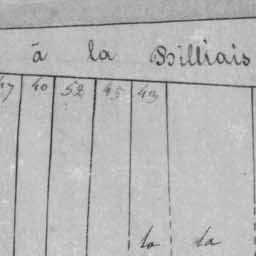 à la Billiais
47 40 52 45 43
la la